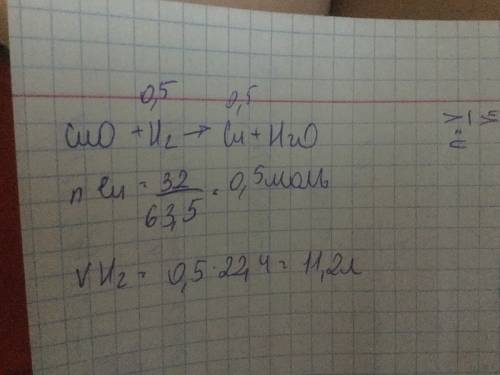 0,5 0,5
CuO + H₂ → Cu + H₂O
n Cu = 32/63,5 = 0,5 моль
V H₂ = 0,5 · 22,4 = 11,2 л